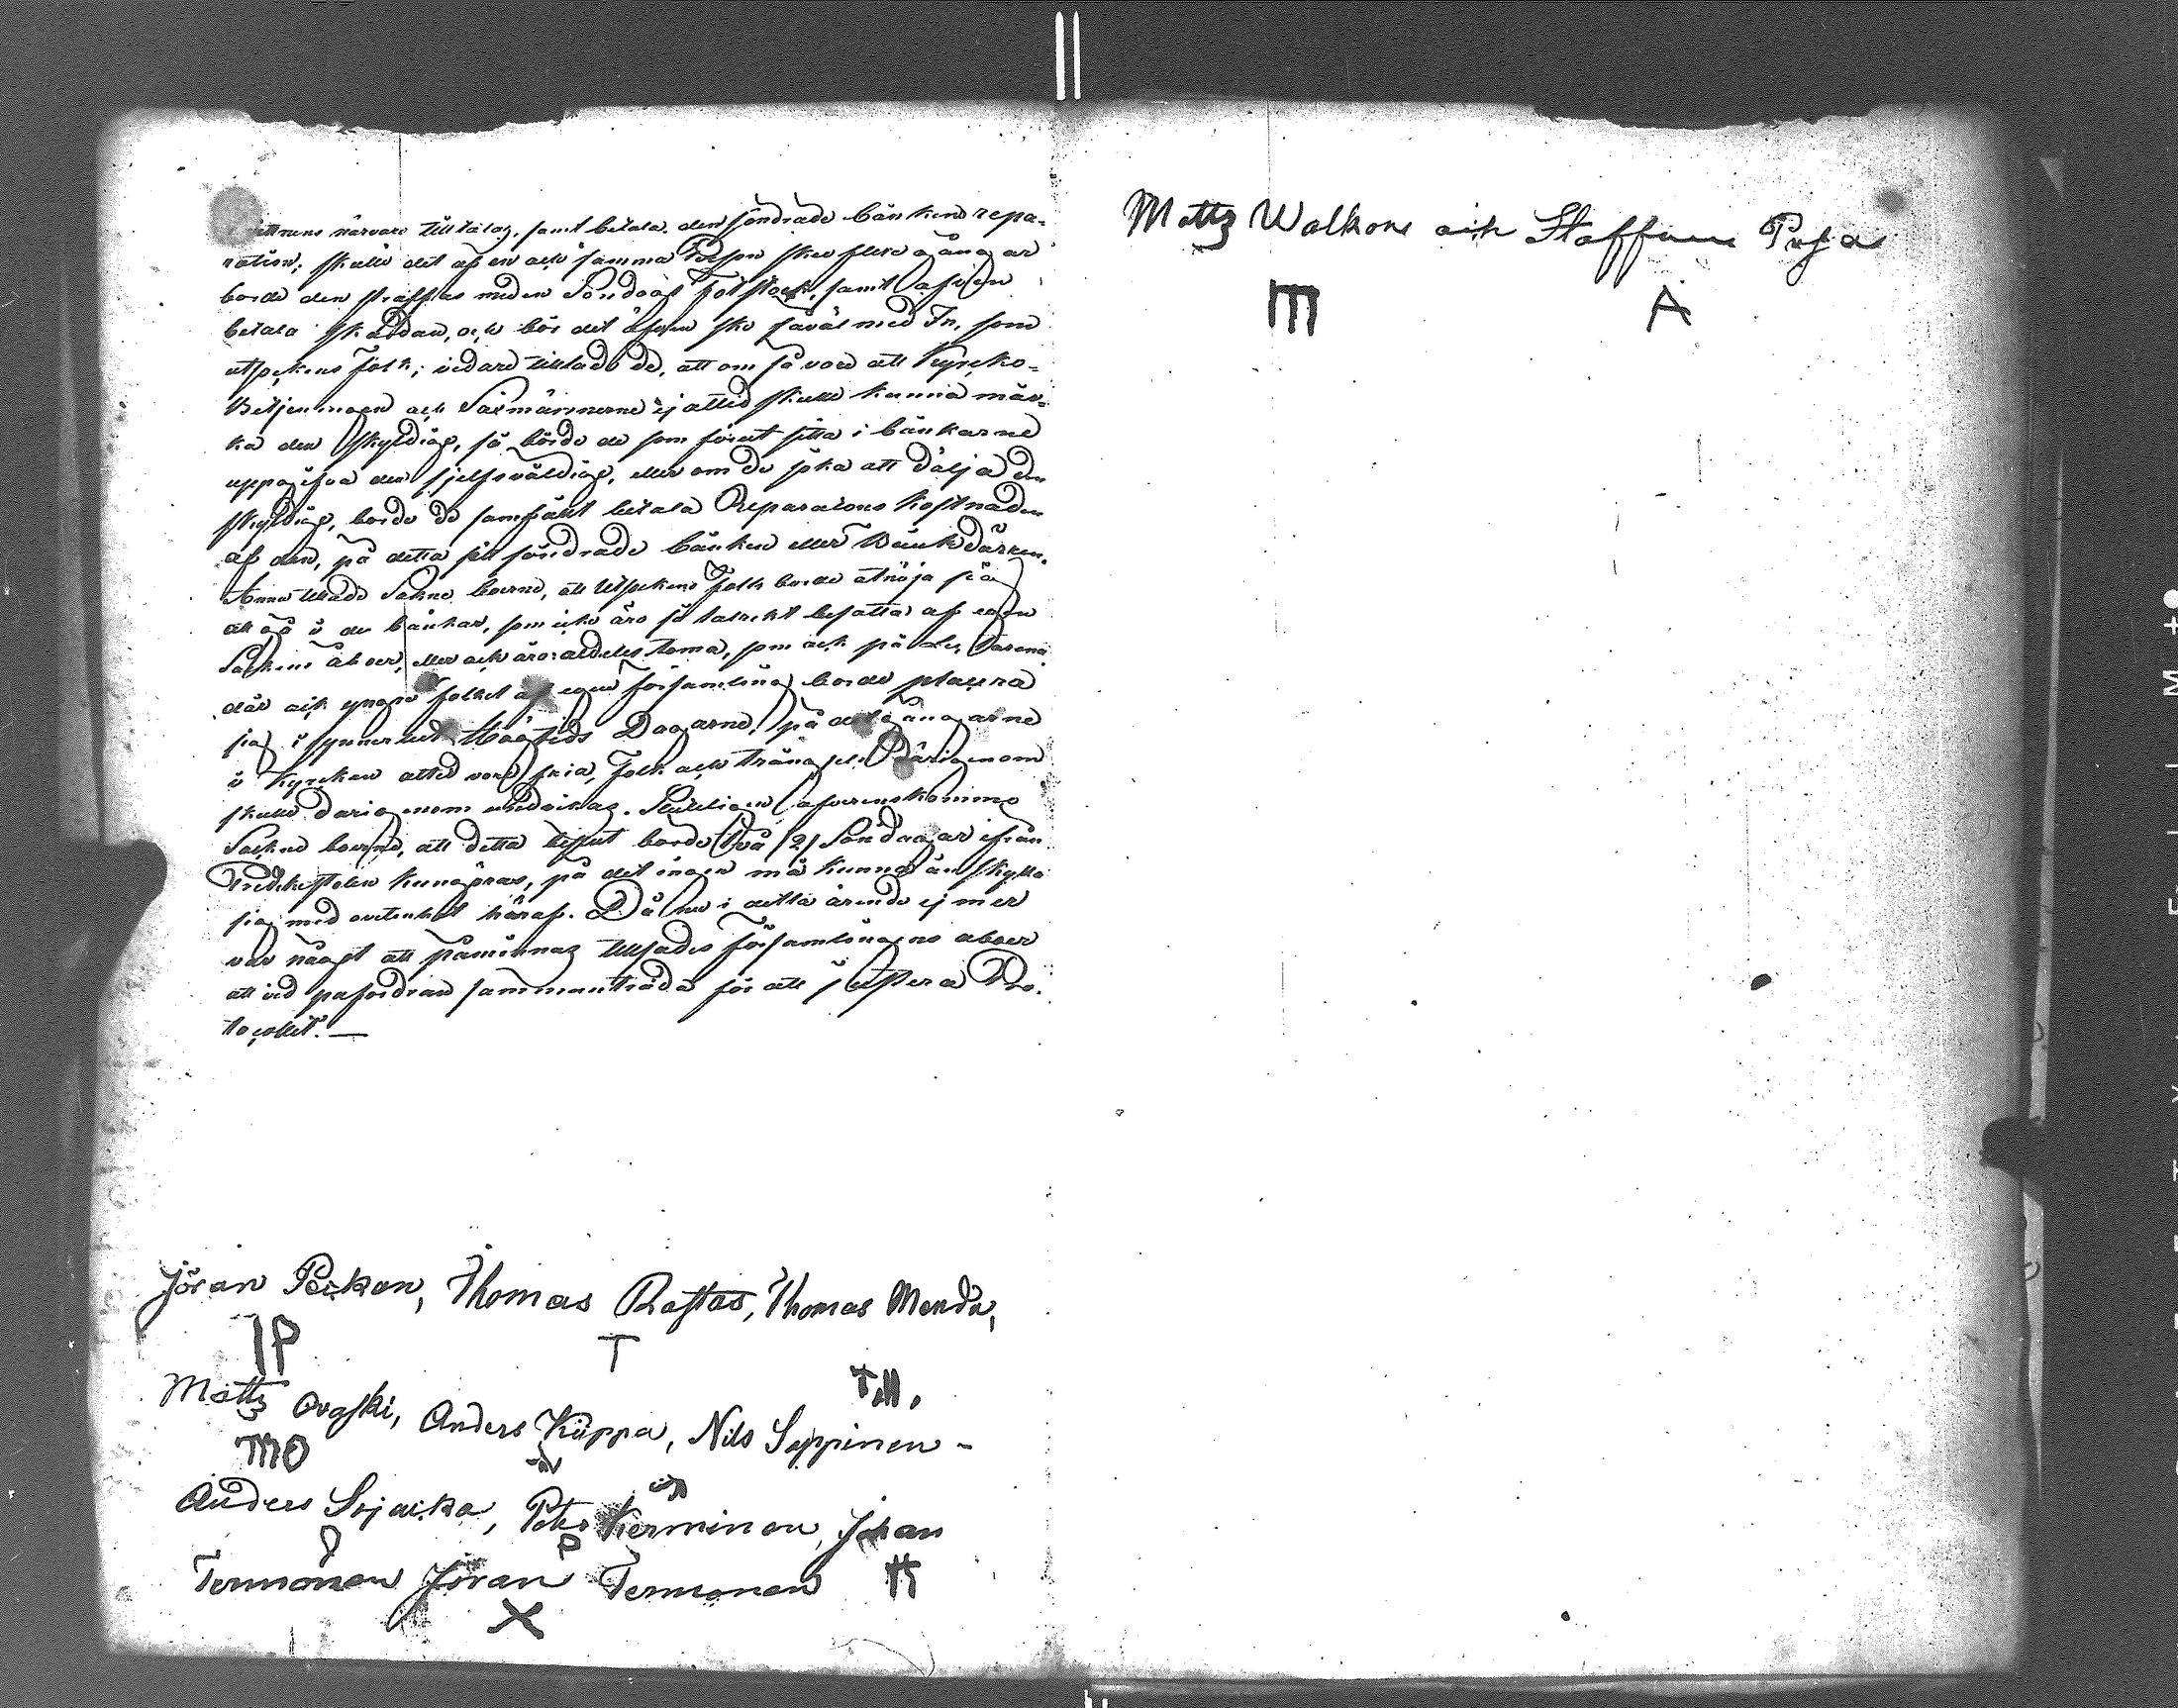 vittnens närvaro tilltalas, samt betala den söndrade bänkens repa-
ration; skulle det af en ock samma Person ske flere gångar
borde den straffas med en Söndags Fotstock, samt äfven
betala skaddan, ock bör det äfven ske såväl med In, som
utsokens Folk; vidare tillade de, att om så vore att Kyrcko-
Betjenningen ock Säxmännerne ej alltid skulle kunna mär-
ka den skyldige, så borde de som förut sitta i bänkarne
uppgifva den sjelfsväldige, eller om de söka att dälja den
skyldige, borde de samfält betala Reparations kostnaden
af den, på detta sätt söndrade bänken eller Bänkdärren.
Ännu tillade Sokne boerne, att Utsokens folk borde åtnöja sig
att gå i de bänkar, som icke äro så talrikt besatta af egen
Socknens åboer, eller ock äro aldeles toma, som ock på
där ock yngre folket af egen församling borde placera
sig i synnerhet Högtids Dagarne, på det gångarne
i Kyrckan alltid vore fria, Folk ock trängsel därigenom
skulle darigenom undvikas. Sluteligen öfverenskommo
Sockne boerne, att detta beslut borde två /2/ Söndagar ifrån
Predikstolen kungöras, på det ingen må kunna urskylla
sig med ovetenhet häraf. Då nu i detta ärende ej mer
var något att påminnas tillsades Församlingens åboer
att vid pafordran sammanträda för att justera Pro-
tocollet. —
Jöran Peckon, Thomas Rastas, Thomas Monda,
IP T
TM.
Matts Ovaski, Anders Kiippa, Nils Seppinen -
MO
Anders Sojacka, Petr Kerminen, Johan
P
Termonen Jöran Termonen
X
Matts Walkone ock Staffan Pusa
m Å